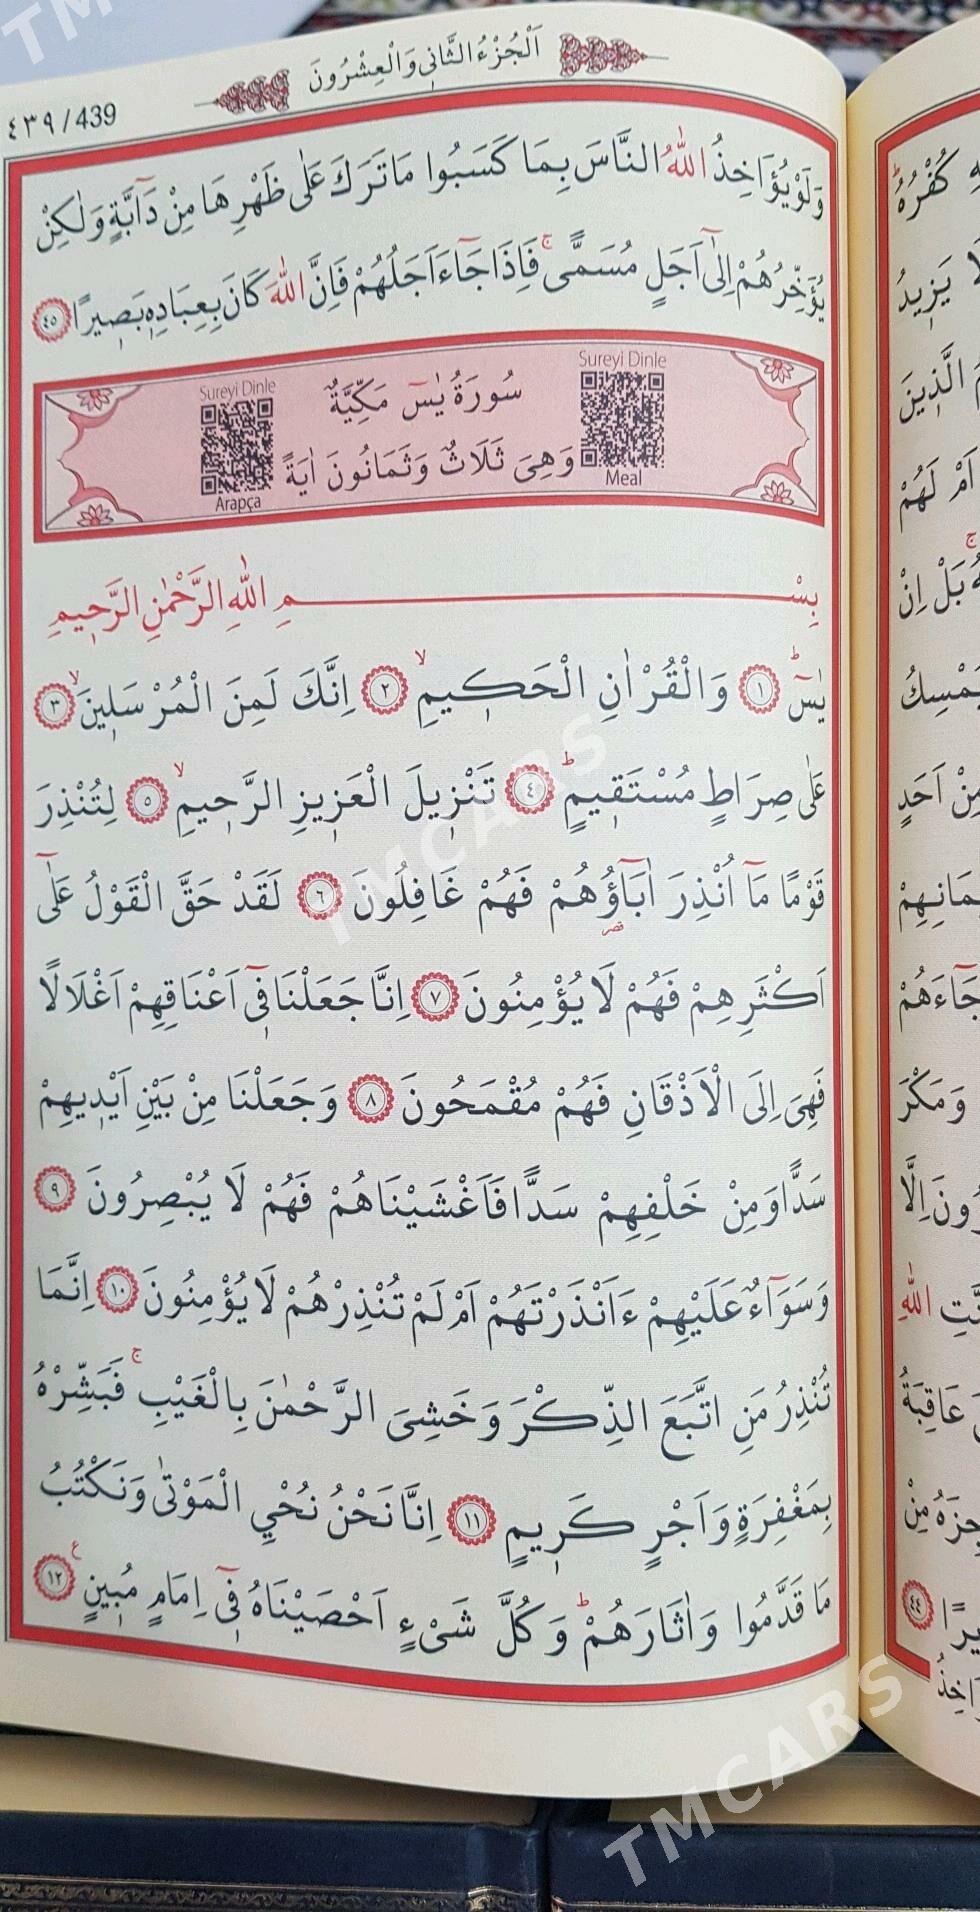 اَلْجُزْءُ الثَّانِى وَالْعِشْرُونَ
٤٣٩ / 439
وَلَوْ يُؤَاخِذُ اللّٰهُ النَّاسَ بِمَا كَسَبُوا مَا تَرَكَ عَلٰى ظَهْرِهَا مِنْ دَٓابَّةٍ وَلٰكِنْ
يُؤَخِّرُهُمْ اِلٰٓى اَجَلٍ مُسَمًّى ۚ فَاِذَا جَٓاءَ اَجَلُهُمْ فَاِنَّ اللّٰهَ كَانَ بِعِبَادِهٖ بَصٖيرًا ٤٥
Sureyi Dinle
Sureyi Dinle
سُورَةُ يٰسٓ مَكِّيَّةٌ
وَهِىَ ثَلَاثٌ وَثَمَانُونَ اٰيَةً
Meal
Arapça
بِسْمِ اللّٰهِ الرَّحْمٰنِ الرَّحٖيمِ
يٰسٓ ۜ ١ وَالْقُرْاٰنِ الْحَكٖيمِ ۙ ٢ اِنَّكَ لَمِنَ الْمُرْسَلٖينَ ۙ ٣
عَلٰى صِرَاطٍ مُسْتَقٖيمٍ ۜ ٤ تَنْزٖيلَ الْعَزٖيزِ الرَّحٖيمِ ۙ ٥ لِتُنْذِرَ
قَوْمًا مَٓا اُنْذِرَ اٰبَٓاؤُ۬هُمْ فَهُمْ غَافِلُونَ ٦ لَقَدْ حَقَّ الْقَوْلُ عَلٰٓى
قصر
اَكْثَرِهِمْ فَهُمْ لَا يُؤْمِنُونَ ٧ اِنَّا جَعَلْنَا فٖٓى اَعْنَاقِهِمْ اَغْلَالًا
فَهِىَ اِلَى الْاَذْقَانِ فَهُمْ مُقْمَحُونَ ٨ وَجَعَلْنَا مِنْ بَيْنِ اَيْدٖيهِمْ
سَدًّا وَمِنْ خَلْفِهِمْ سَدًّا فَاَغْشَيْنَاهُمْ فَهُمْ لَا يُبْصِرُونَ ٩
وَسَوَٓاءٌ عَلَيْهِمْ ءَاَنْذَرْتَهُمْ اَمْ لَمْ تُنْذِرْهُمْ لَا يُؤْمِنُونَ ١٠ اِنَّمَا
تُنْذِرُ مَنِ اتَّبَعَ الذِّكْرَ وَخَشِىَ الرَّحْمٰنَ بِالْغَيْبِ ۚ فَبَشِّرْهُ
بِمَغْفِرَةٍ وَاَجْرٍ كَرٖيمٍ ١١ اِنَّا نَحْنُ نُحْيِ الْمَوْتٰى وَنَكْتُبُ
مَا قَدَّمُوا وَاٰثَارَهُمْ ۜ وَكُلَّ شَىْءٍ اَحْصَيْنَاهُ فٖٓى اِمَامٍ مُبٖينٍ ع ١٢
كُفْرُهُ
يَزٖيدُ
الَّذٖينَ
اَمْ لَهُمْ
بَلْ اِنْ
مِنْ اَحَدٍ
جَٓاءَهُمْ
وَمَكْرَ
اِلَّا
اللّٰهِ
عَاقِبَةُ
مِنْ
٤٤
TMCARS
TMCARS